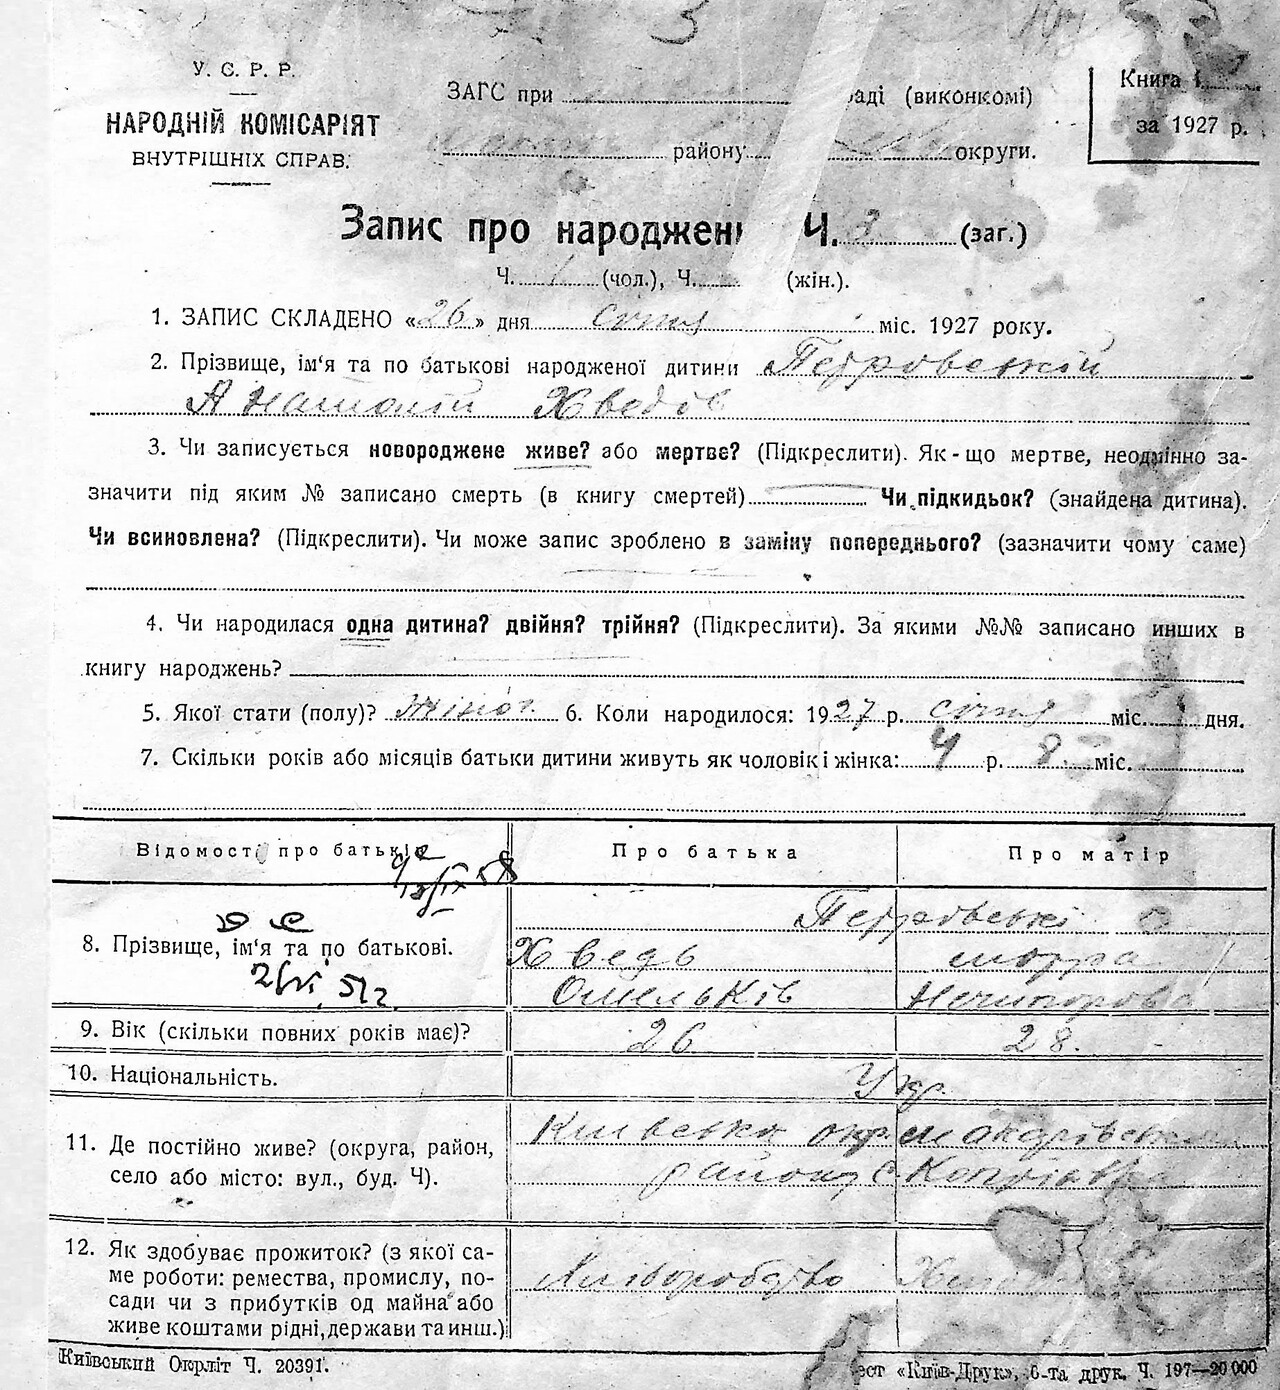 З
У. С. Р. Р.
НАРОДНІЙ КОМІСАРІЯТ
ВНУТРІШНІХ СПРАВ.
ЗАГС при раді (виконкомі)
району округи.
Книга І
за 1927 р.
Запис про народжен Ч. (заг.)
Ч. 1 (чол.), Ч. (жін.).
1. ЗАПИС СКЛАДЕНО «26» дня січня міс. 1927 року.
2. Прізвище, ім‘я та по батькові народженої дитини Петровський
Анатолій Хведів
3. Чи записується новороджене живе? або мертве? (Підкреслити). Як-що мертве, неодмінно за-
значити під яким № записано смерть (в книгу смертей) Чи підкидьок? (знайдена дитина).
Чи всиновлена? (Підкреслити). Чи може запис зроблено в заміну попереднього? (зазначити чому саме)
4. Чи народилася одна дитина? двійня? трійня? (Підкреслити). За якими №№ записано инших в
книгу народжень?
5. Якої стати (полу)? 6. Коли народилося: 1927 р. січня міс. дня.
7. Скільки років або місяців батьки дитини живуть як чоловік і жінка: 4 р. 8 міс.
Відомості про батьків
Про батька
Про матір
8. Прізвище, ім‘я та по батькові.
Петровські
Хведь
Омельків
мотря
Ничипорова
9. Вік (скільки повних років має)?
26
28.
10. Національність.
Укр.
11. Де постійно живе? (округа, район,
село або місто: вул., буд. Ч).
Київська окр. макарівськ
району с. Копіївка
12. Як здобуває прожиток? (з якої са-
ме роботи: ремества, промислу, по-
сади чи з прибутків од майна або
живе коштами рідні, держави та инш.)
Хліборобство
Київський Окрліт Ч. 20391.
ест «Київ-Друк», 6-та друк. Ч. 197—20 000